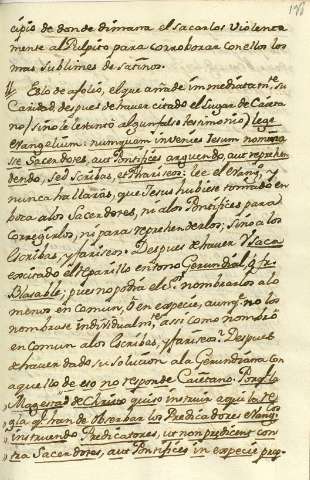 176
cipio de donde dimana el sacarlos violenta
mente al Pulpito para corroborar con ellos los
mas sublimes desatinos.
Es lo de a folio, el que añade inmediatamte. su
Caridad, despues de haver citado el Lugar de Caieta
no (sino le levantó algun falso testimonio) lege
evangelium: nunquam invenies Iesum nomina
sse Sacerdotes, aut Pontifices arguendo, aut reprehen
dendo, sed Scribas, et Phariseos: lee el Evangº, y
nunca hallarás, que Jesus hubiese tomado en
boca a los Sacerdotes, ni a los Pontifices para
Corregirlos, ni para reprehenderlos; sino a los
Escribas, y fariseos. Despues de haver
excitado el reparillo en tono Gerundial, y fr.
Blasable; pues no podría el Sr. nombrarlos a lo
menos en comun, ò en especie, aunqe. no los
nombrase individualmte., assi como nombró
en comun a los Escribas, y fariseos? Despues
de haver dado su solucion a la Gerundiana con
aquello de eso no responde Caietano. Porqe. la
Magestad de Christo quiso instruir aqui la re
gla qe. han de observar los Predicadores Evangcos.
instruendo Predicatores, ut non predicent con
tra Sacerdotes, aut Pontifices in especie prop-